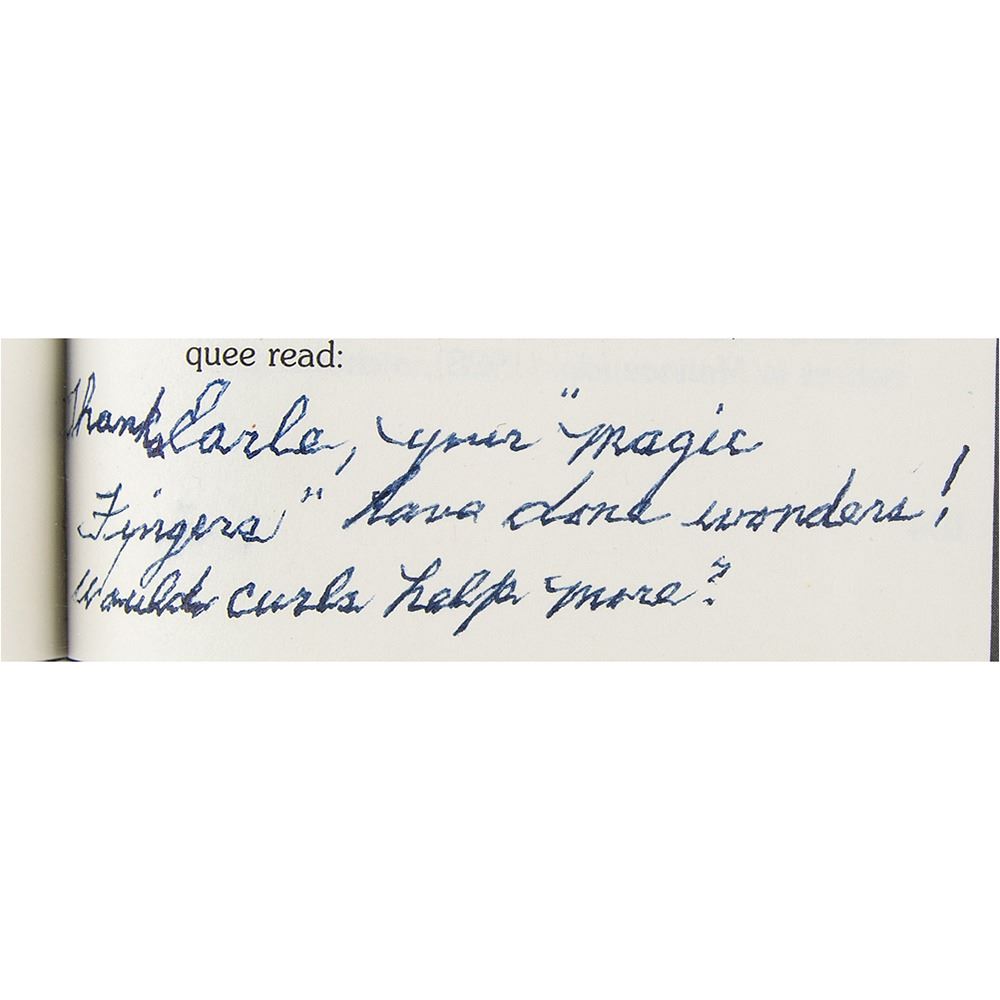 quee read:
Thanks Earle, your "magic
Fingers" have done wonders!
Would curls help more?